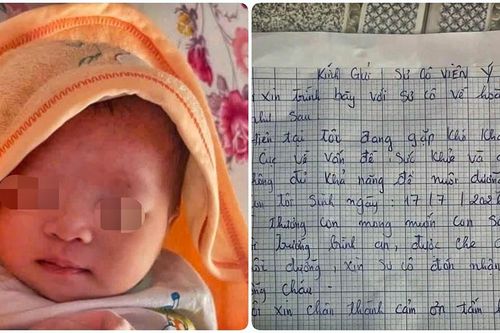 Kính Gửi Sư Cô VIÊN Ý
xin trình bày với Sư cô về hoàn
như sau
tại tôi đang gặp khó khă
cực về vấn đề sức khỏe và
đủ khả năng để nuôi dưỡng
tôi sinh ngày: 17/7/202
Thương con mong muốn con
trưởng bình an, được che c
dưỡng, xin sư cô đón nhận
Cháu.
xin chân thành cảm ơn tấm